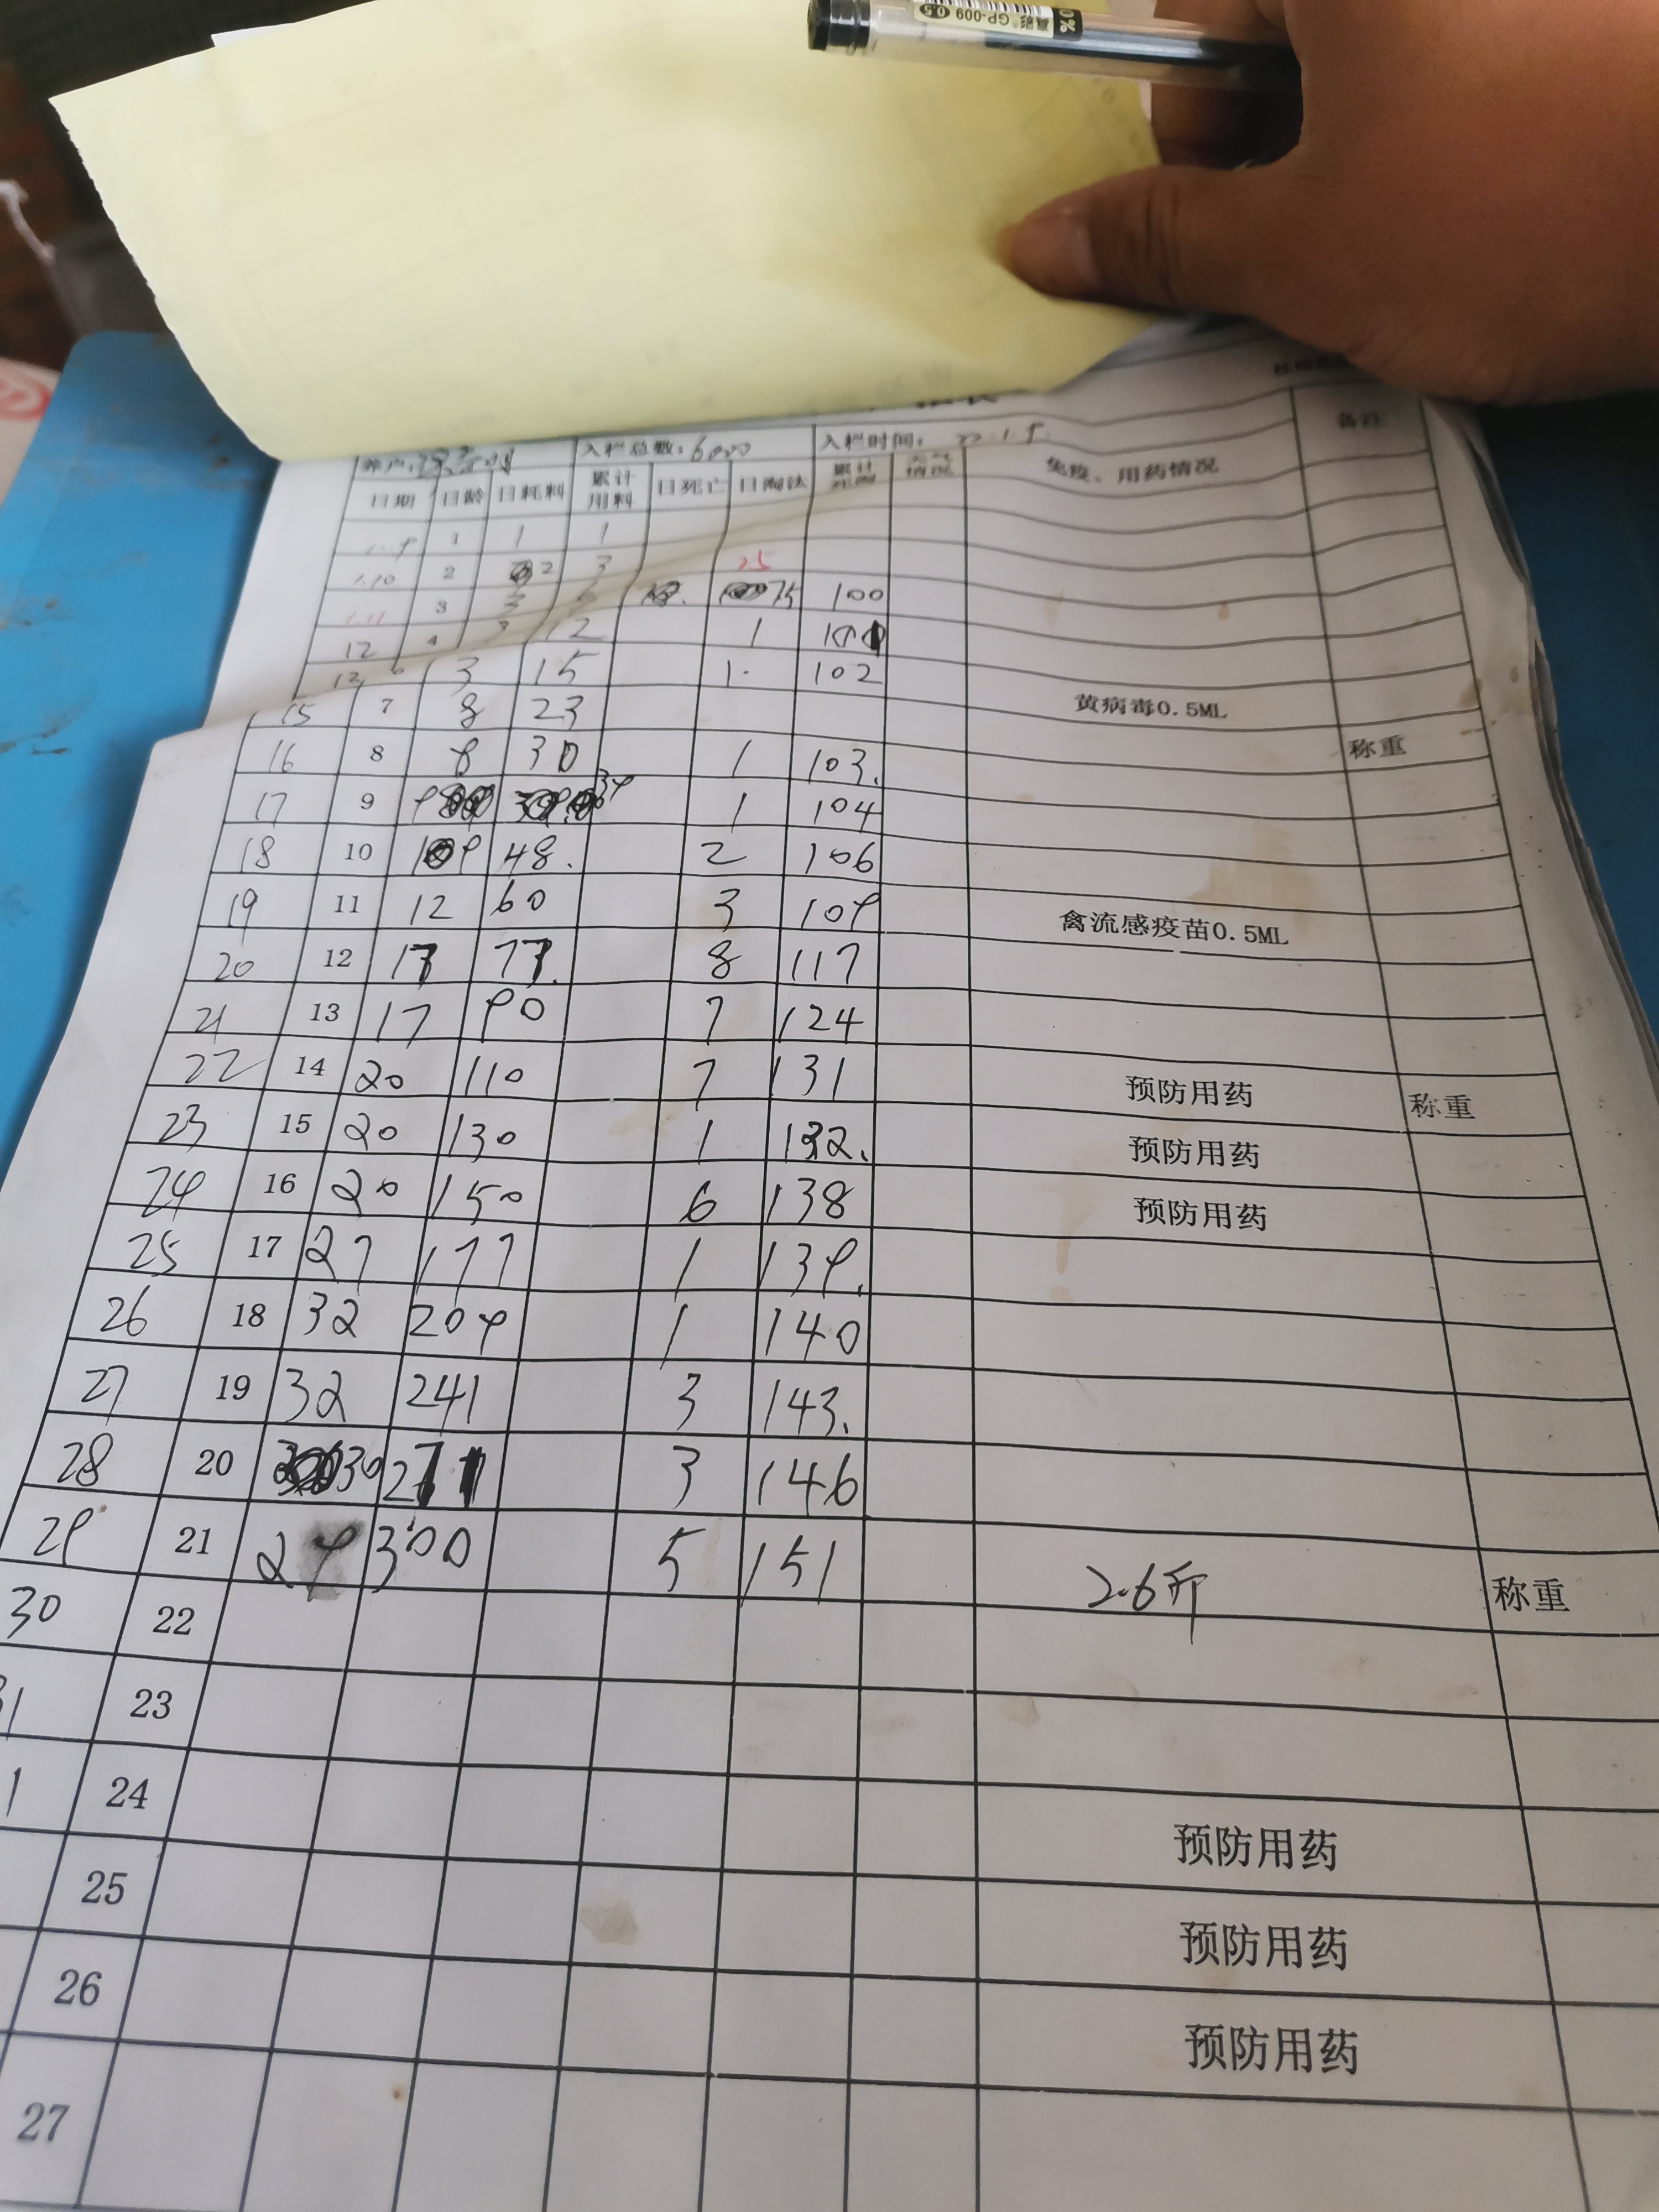 GP-009 0.5
养户: 入栏总数: 6000 入栏时间: 备注
日期 日龄 日耗料 累计用料 日死亡 日淘汰 累计死淘 天气情况 免疫、用药情况
1 1 1
1.10 2 2 3 25
3 75 100
12 4 12 1 101
3 15 1. 102
15 7 8 23 黄病毒0.5ML
16 8 8 30 1 103. 称重
17 9 9 39 1 104
18 10 9 48. 2 106
19 11 12 60 3 109 禽流感疫苗0.5ML
20 12 17 77. 8 117
21 13 17 90 7 124
22 14 20 110 7 131 预防用药 称重
23 15 20 130 1 132. 预防用药
24 16 20 150 6 138 预防用药
25 17 27 177 1 139.
26 18 32 209 1 140
27 19 32 241 3 143.
28 20 30 271 3 146
29 21 29 300 5 151 2.6斤 称重
30 22
31 23
1 24 预防用药
25 预防用药
26 预防用药
27